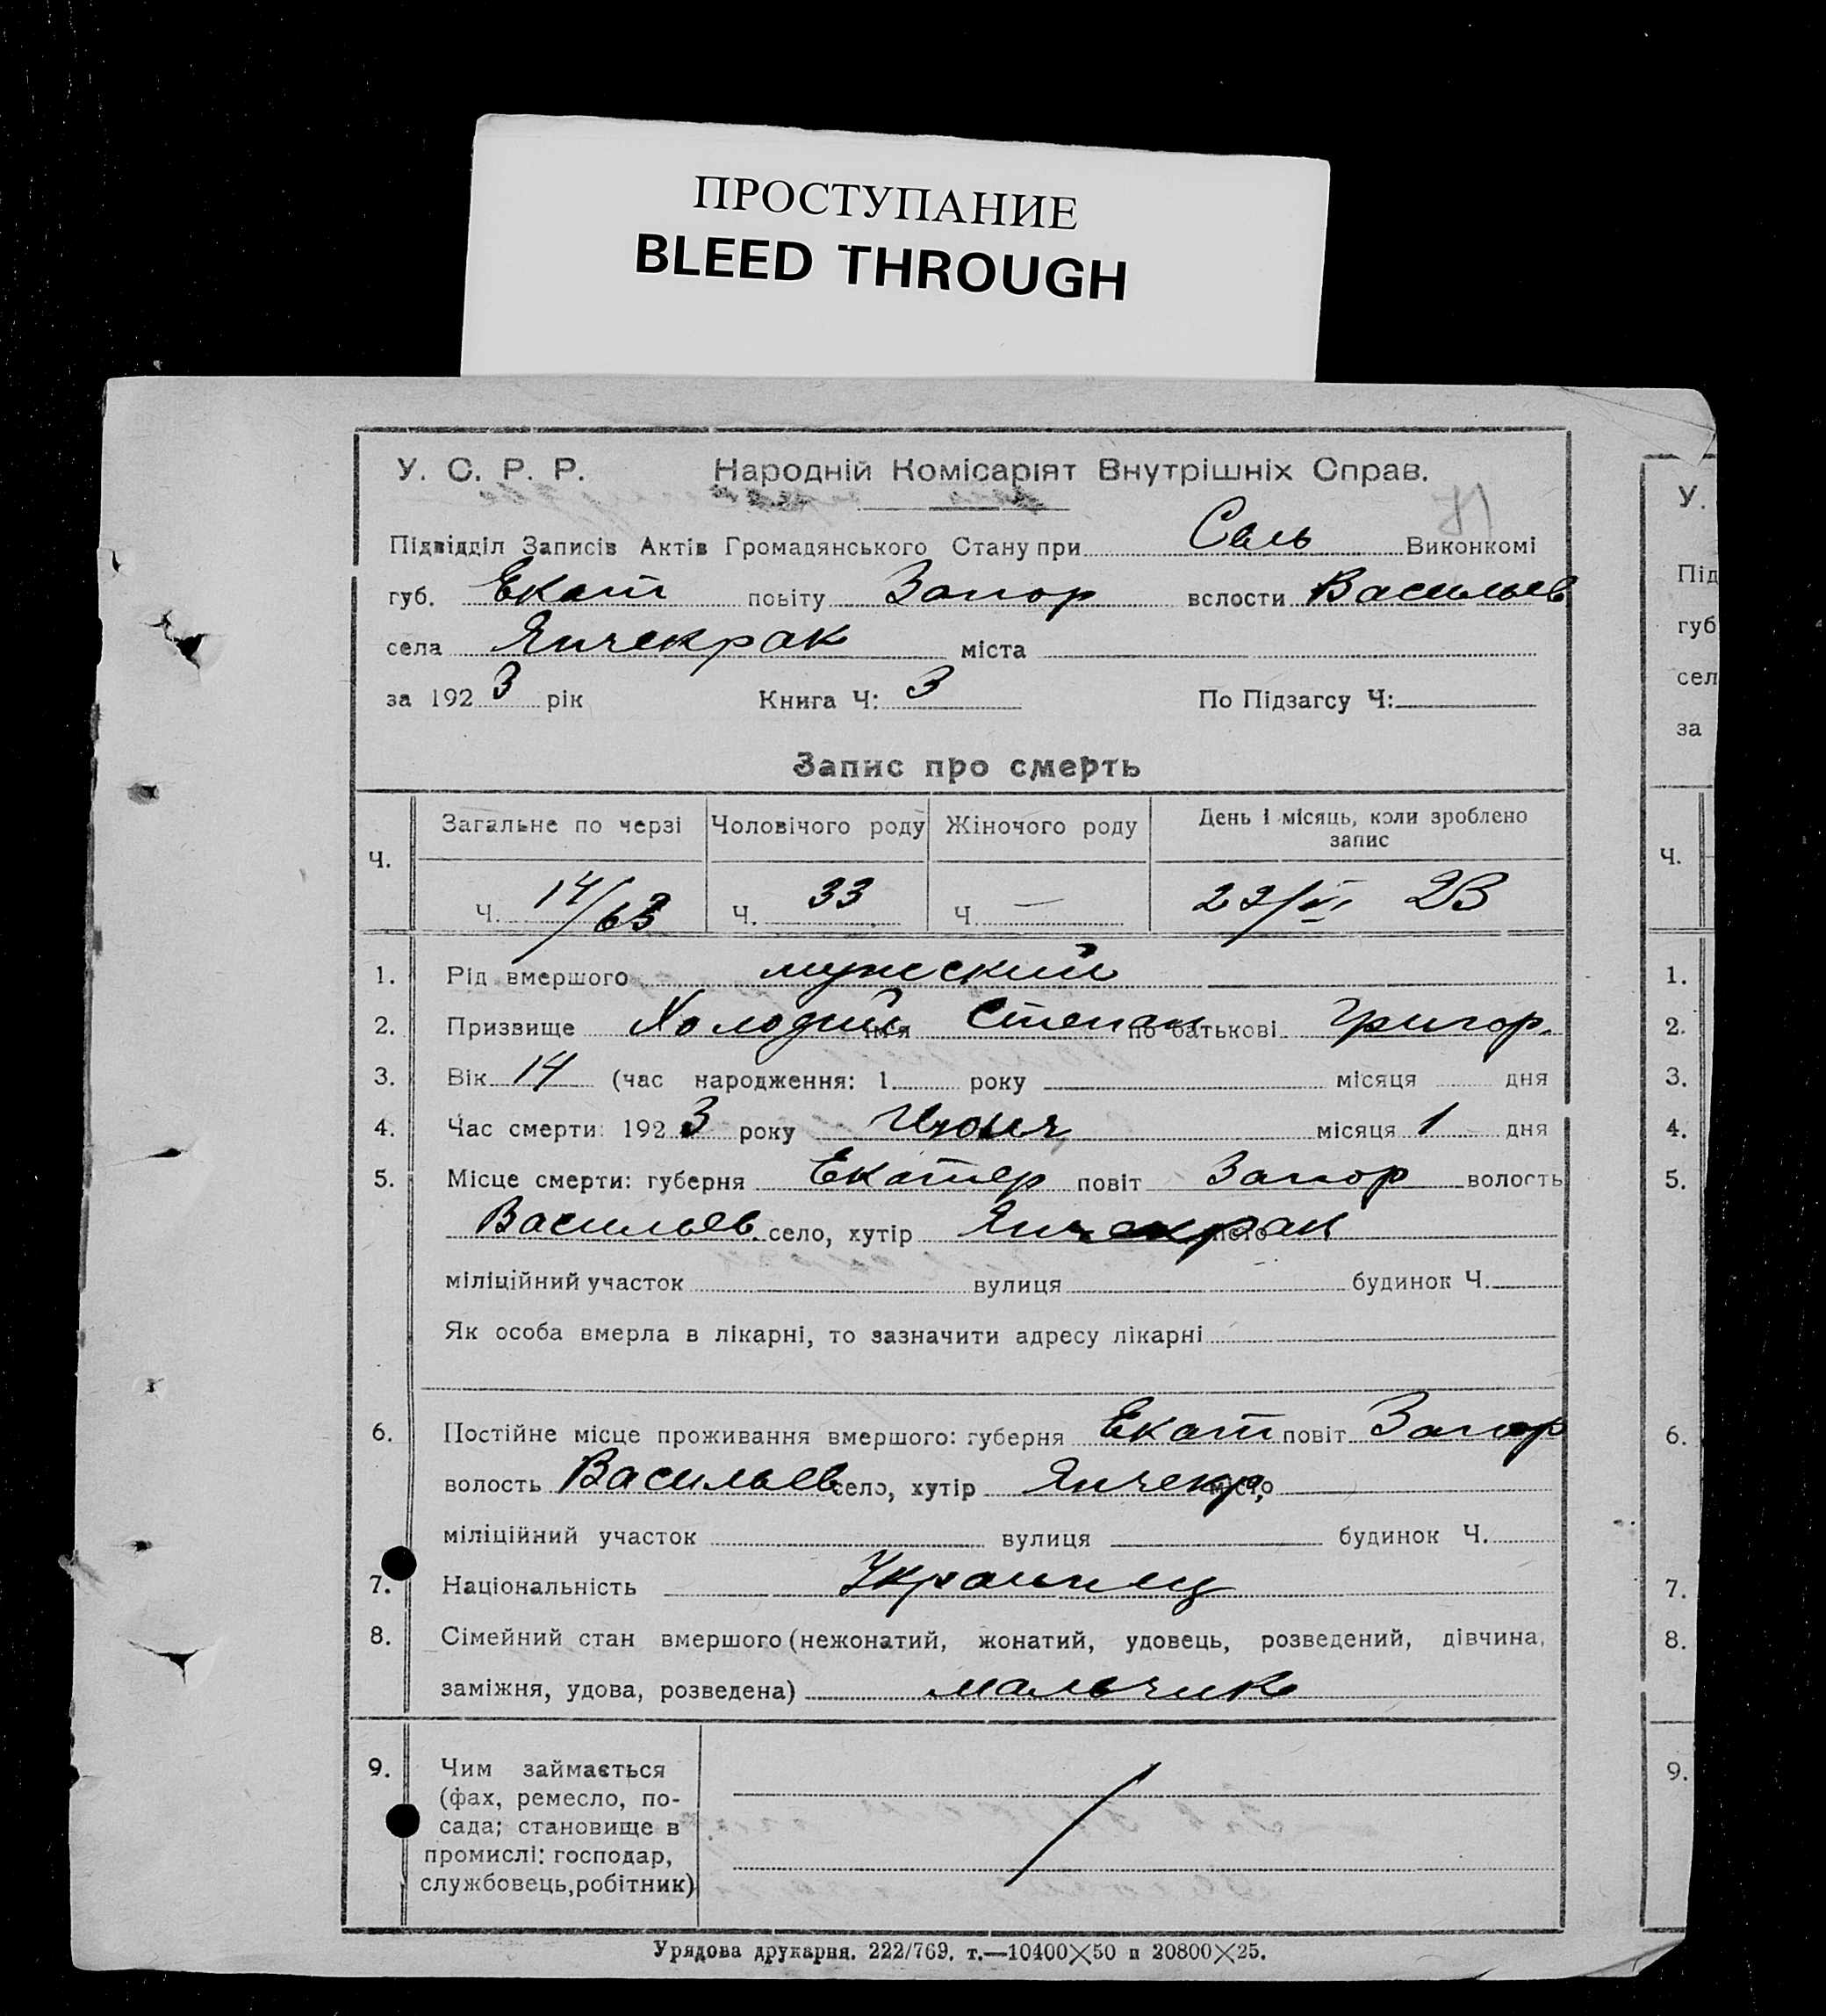 ПРОСТУПАНИЕ
BLEED THROUGH
У. С. Р. Р. Народній Комісаріят Внутрішніх Справ.
Підвідділ Записів Актів Громадянського Стану при Сель Виконкомі
губ. Екат повіту Запор волости Васильев
села Янчекрак міста
за 1923 рік Книга Ч: 3 По Підзагсу Ч:
Запис про смерть
Ч. Загальне по черзі Чоловічого роду Жіночого роду День і місяць, коли зроблено запис
Ч. 14/63 Ч. 33 Ч. — 22/VI 23
1. Рід вмершого мужеский
2. Призвище Холодный імя Степан по батькові Григор.
3. Вік 14 (час народження: 1 року місяця дня
4. Час смерти: 1923 року Июня місяця 1 дня
5. Місце смерти: губерня Екатер повіт Запор волость
Васильев. село, хутір Янчекрак місто
міліційний участок вулиця будинок Ч.
Як особа вмерла в лікарні, то зазначити адресу лікарні
6. Постійне місце проживання вмершого: губерня Екат повіт Запор
волость Васильев село, хутір Янчекр, місто
міліційний участок вулиця будинок Ч.
7. Національність Украинец
8. Сімейний стан вмершого (нежонатий, жонатий, удовець, розведений, дівчина,
заміжня, удова, розведена) мальчик
9. Чим займається
(фах, ремесло, по-
сада; становище в
промислі: господар,
службовець, робітник)
Урядова друкарня. 222/769. т.—10400×50 п 20800×25.
У.
Під
губ
сел
за
Ч.
1.
2.
3.
4.
5.
6.
7.
8.
9.